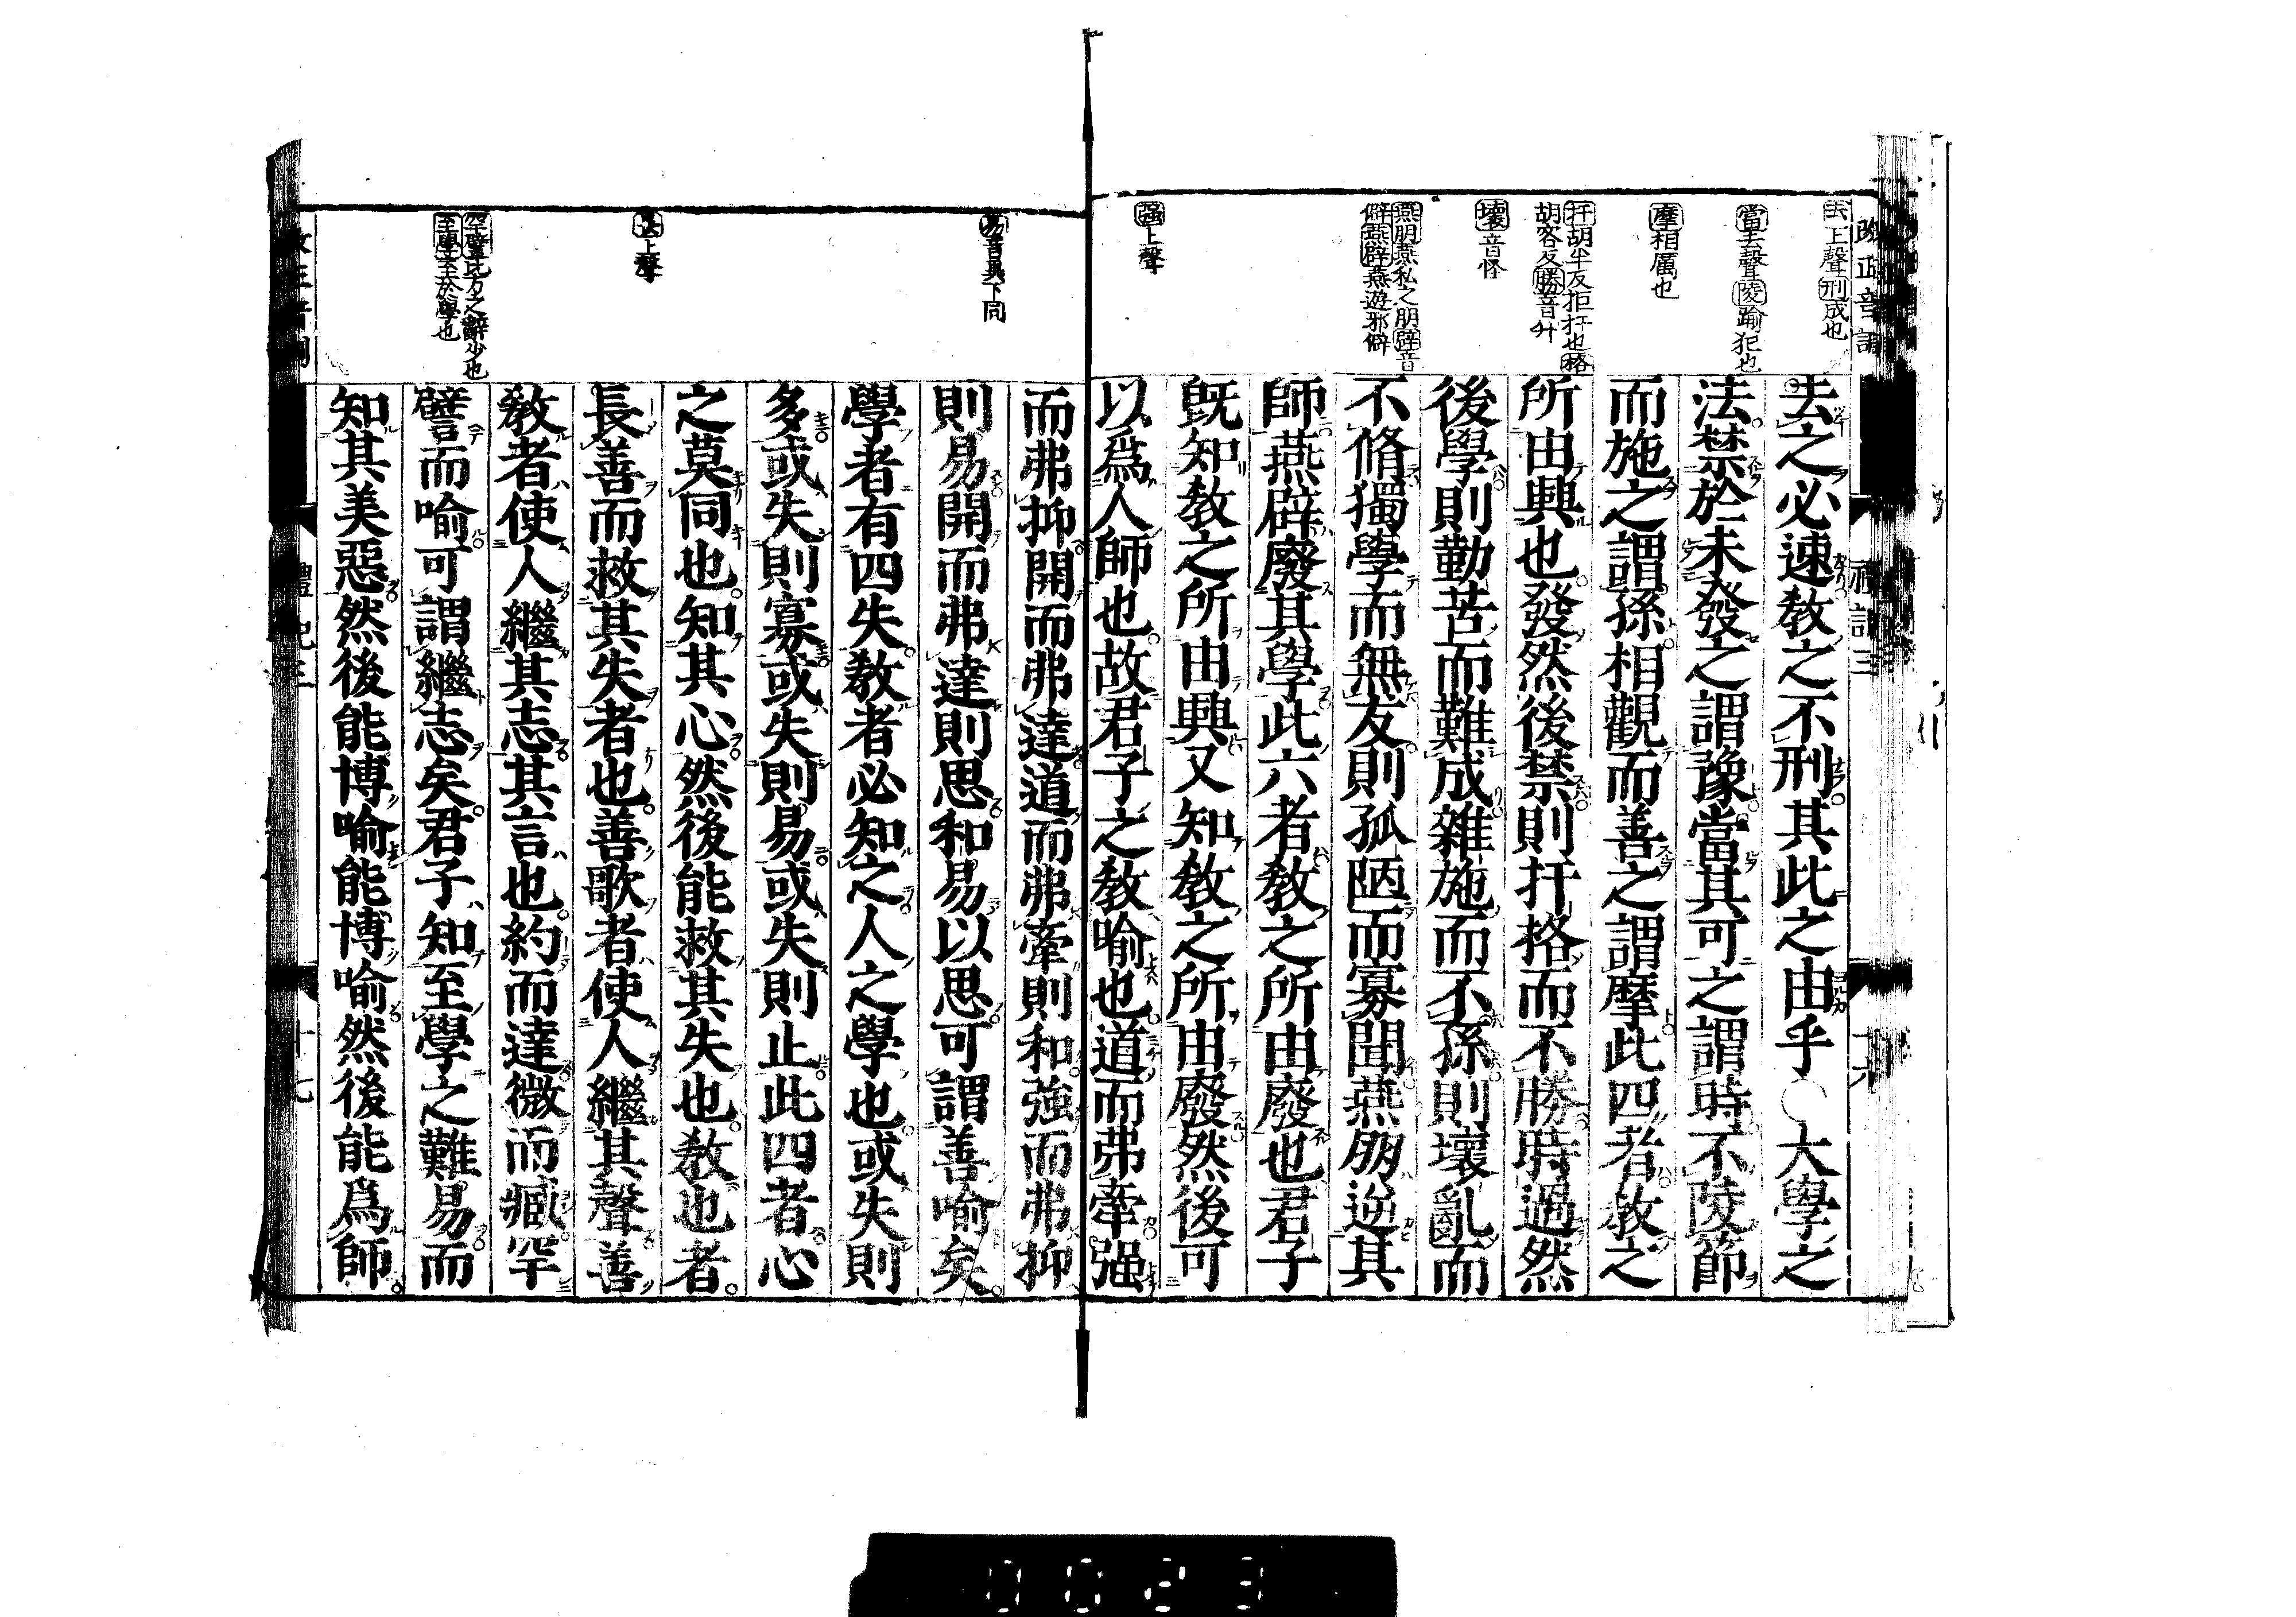 去上聲刑成也
當去聲陵踰犯也
摩相厲也
扞胡半反拒扞也格
胡客反勝音升
壞音怪
燕朋燕私之朋辟音
僻燕辟燕遊邪僻
强上聲
去之必速教之不刑其此之由乎○大學之
法禁於未發之謂豫當其可之謂時不陵節
而施之謂孫相觀而善之謂摩此四者教之
所由興也發然後禁則扞格而不勝時過然
後學則勤苦而難成雜施而不孫則壞亂而
不脩獨學而無友則孤陋而寡聞燕朋逆其
師燕辟廢其學此六者教之所由廢也君子
既知教之所由興又知教之所由廢然後可
以爲人師也故君子之教喻也道而弗牽强
易音異下同
長上聲
罕譬比方之辭少也
至學至於學也
而弗抑開而弗達道而弗牽則和強而弗抑
則易開而弗達則思和易以思可謂善喻矣
學者有四失教者必知之人之學也或失則
多或失則寡或失則易或失則止此四者心
之莫同也知其心然後能救其失也教也者
長善而救其失者也善歌者使人繼其聲善
教者使人繼其志其言也約而達微而臧罕
譬而喻可謂繼志矣君子知至學之難易而
知其美惡然後能博喻能博喻然後能爲師
禮記三
十七
0023